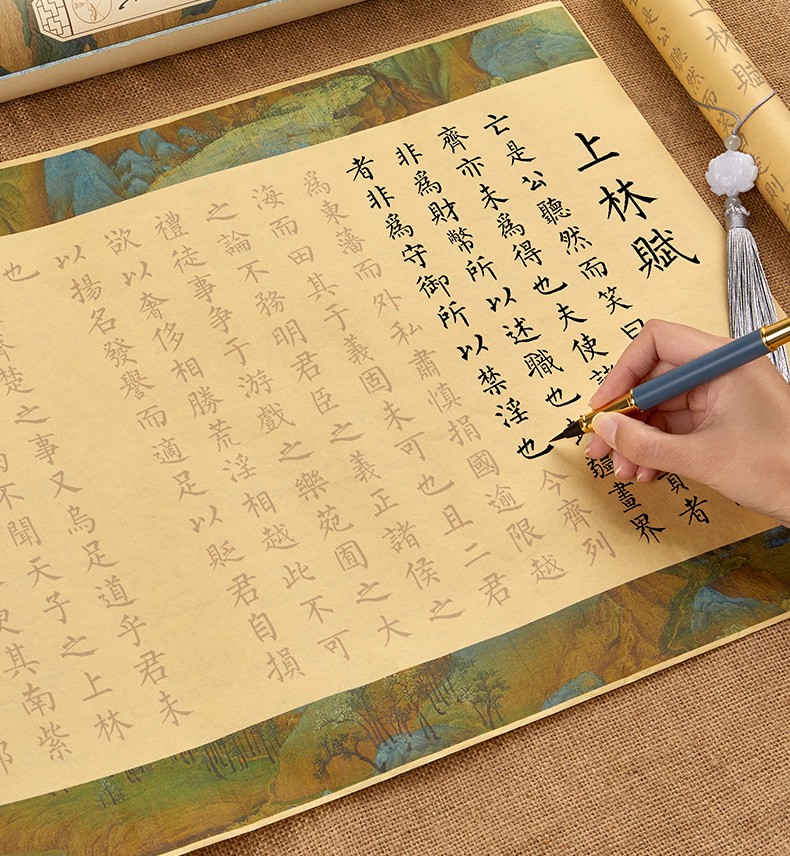 上林賦
亡是公聽然而笑曰
齊亦未為得也夫使諸貢者
非為財幣所以述職也疆畫界
者非為守御所以禁淫也今齊列
為東藩而外私肅慎捐國逾限越
海而田其于義固未可也且二君
之論不務明君臣之義正諸侯之
禮徒事爭于游戲之樂苑囿之大
欲以奢侈相勝荒淫相越此不可
以揚名發譽而適足以貶君自損
也齊楚之事又烏足道乎君未
不聞天子之上林
其南紫
上林賦
是公聽然而笑
則